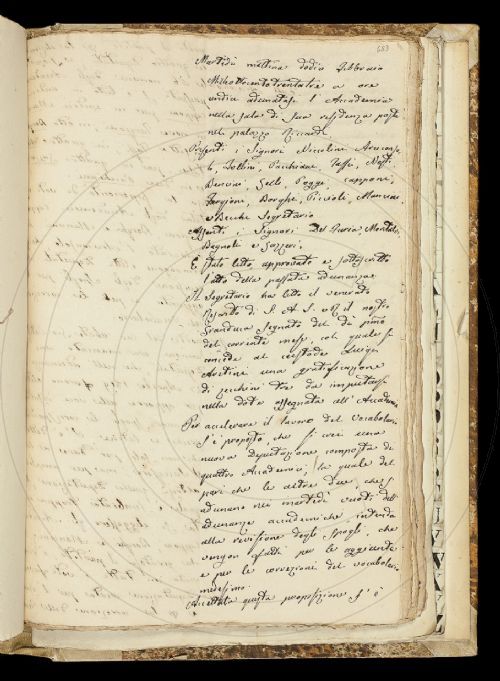 683
Martedì mattina dodici Febbraio
Milleottocentotrentatre a ore
undici adunatasi l'Accademia
nella sala di sua residenza posta
nel palazzo Riccardi
Presenti i Signori Niccolini
Follini, Pacchiani, Nesti,
Bencini, Selli, Poggi, Capponi,
Targioni, Borghi, Piccioli,
e Becchi Segretario
Assenti i Signori Del Furia,
Bagnoli e Gazzeri.
È stato letto approvato e sottoscritto
l'atto della passata adunanza
Il Segretario ha letto il venerato
Rescritto di S. A. I. e R. il nostro
Granduca segnato del dì primo
del corrente mese col quale si
concede al custode Luigi
una gratificazione
di zecchini tre da imputarsi
nella dote assegnata all'Accademia
Per accelerare il lavoro del Vocabolario
s'è proposto, che si crei una
nuova Deputazione composta di
quattro Accademici, la quale del
pari che le altre due, che s'
adunano nei martedì vuoti dell'
adunanze accademiche intenda
alla revisione degli spogli, che
vengon fatti per le aggiunte
e per le correzioni del vocabolario
medesimo.
Accettata questa proposizione s'è